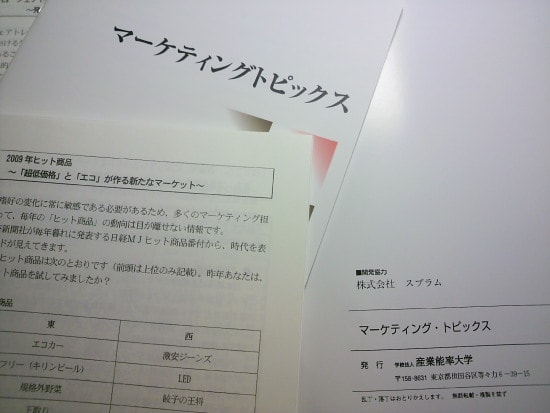 マーケティングトピックス
2009年ヒット商品
～「超低価格」と「エコ」が作る新たなマーケット～
嗜好の変化に常に敏感である必要があるため、多くのマーケティング担
って、毎年の「ヒット商品」の動向は目が離せない情報です。
新聞社が毎年暮れに発表する日経MJヒット商品番付から、時代を表
ドが見えてきます。
ヒット商品は次のとおりです（前頭は上位のみ記載）。昨年あなたは、
ット商品を試してみましたか？
商品
東
西
エコカー
激安ジーンズ
フリー（キリンビール）
LED
規格外野菜
餃子の王将
下取り
■開発協力
株式会社 スプラム
マーケティング・トピックス
発行 学校法人 産業能率大学
〒158-8631 東京都世田谷区等々力6-39-15
乱丁・落丁はおとりかえします。 無断転載・複製を禁ず